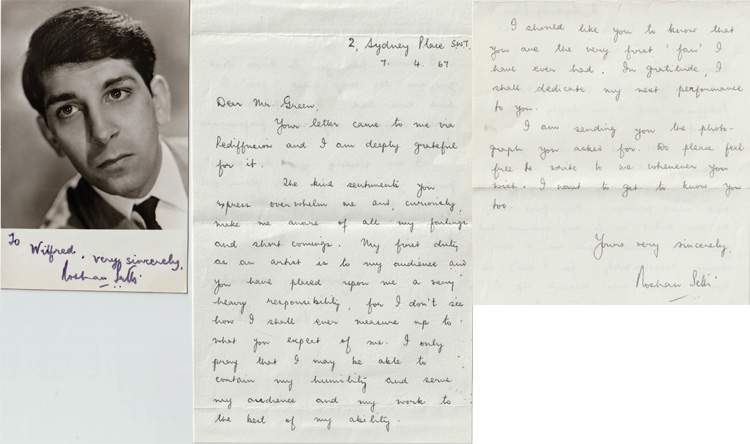 To Wilfred. very sincerely,
Roshan Seth.
2, Sydney Place SW7.
7. 4. 67
Dear Mr Green,
Your letter came to me via
Rediffusion and I am deeply grateful
for it.
The kind sentiments you
express overwhelm me and, curiously,
make me aware of all my failings
and short comings. My first duty
as an artist is to my audience and
you have placed upon me a very
heavy responsibility, for I don't see
how I shall ever measure up to
what you expect of me. I only
pray that I may be able to
contain my humility and serve
my audience and my work to
the best of my ability.
I should like you to know that
you are the very first 'fan' I
have ever had. In gratitude, I
shall dedicate my next performance
to you.
I am sending you the photo-
graph you asked for. Do please feel
free to write to me whenever you
wish. I want to get to know you
too.
Yours very sincerely,
Roshan Seth.